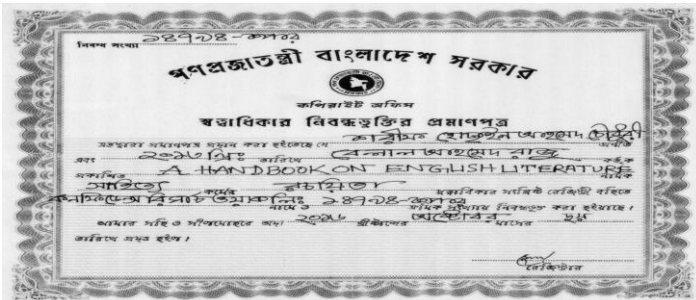 নিবন্ধ সংখ্যা ১৪৭৯৪-কপার
গণপ্রজাতন্ত্রী বাংলাদেশ সরকার
কপিরাইট অফিস
স্বত্বাধিকার নিবন্ধভুক্তির প্রমাণপত্র
এতদ্বারা প্রমাণপত্র প্রদান করা হইতেছে যে হোসাইন আহমেদ চৌধুরী
এবং ২০১৬ খ্রিঃ তারিখে বেলাল আহমেদ রাজু কর্তৃক
প্রকাশিত A HANDBOOK ON ENGLISH LITERATURE নামক
সাহিত্য কর্মের রচয়িতা স্বত্বাধিকার সংশ্লিষ্ট রেজিস্ট্রি বহিতে
১৪৭৯৪-কপার নামে ও ক্রমিক সংখ্যায় নিবন্ধভুক্ত করা হইয়াছে।
আমার সহি ও সীলমোহরে অদ্য ২০১৬ খ্রীস্টাব্দের অক্টোবর মাসের
তারিখে প্রদত্ত হইল।
রেজিস্ট্রার